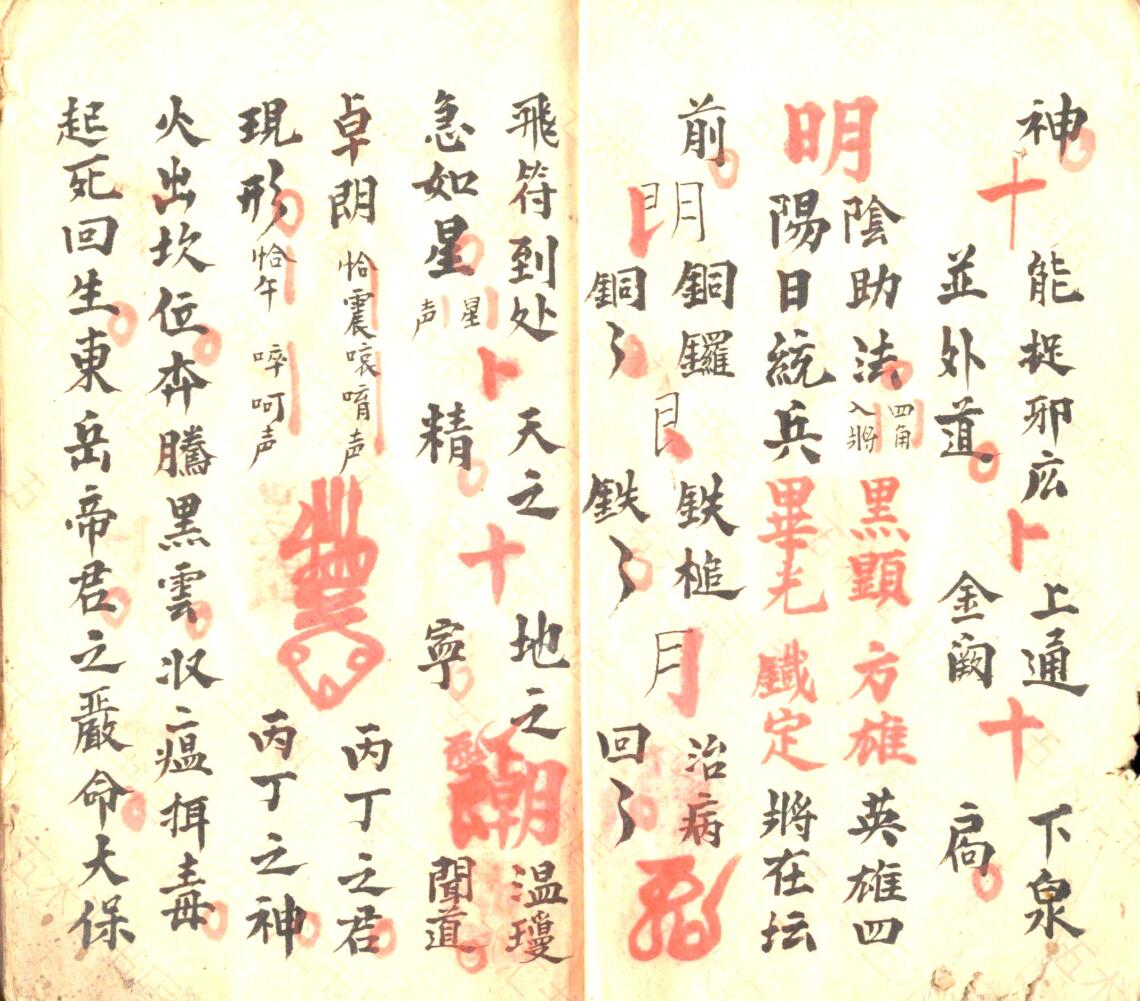 神十能捉邪広卜上通十下泉
並外道金阙扃
明陰助法四角入將黑顕方雄英雄四
陽日統兵畢光鐵定將在坛
前銅鑼鉄槌治病
銅〻鉄〻回〻
飛符到处天之地之温瓊
急如星星声卜精十寧聞道
卓朗恰震哀唷声丙丁之君
現形恰午啐呵声丙丁之神
火出坎位奔騰黑雲収瘟毒
起死回生東岳帝君之嚴命大保